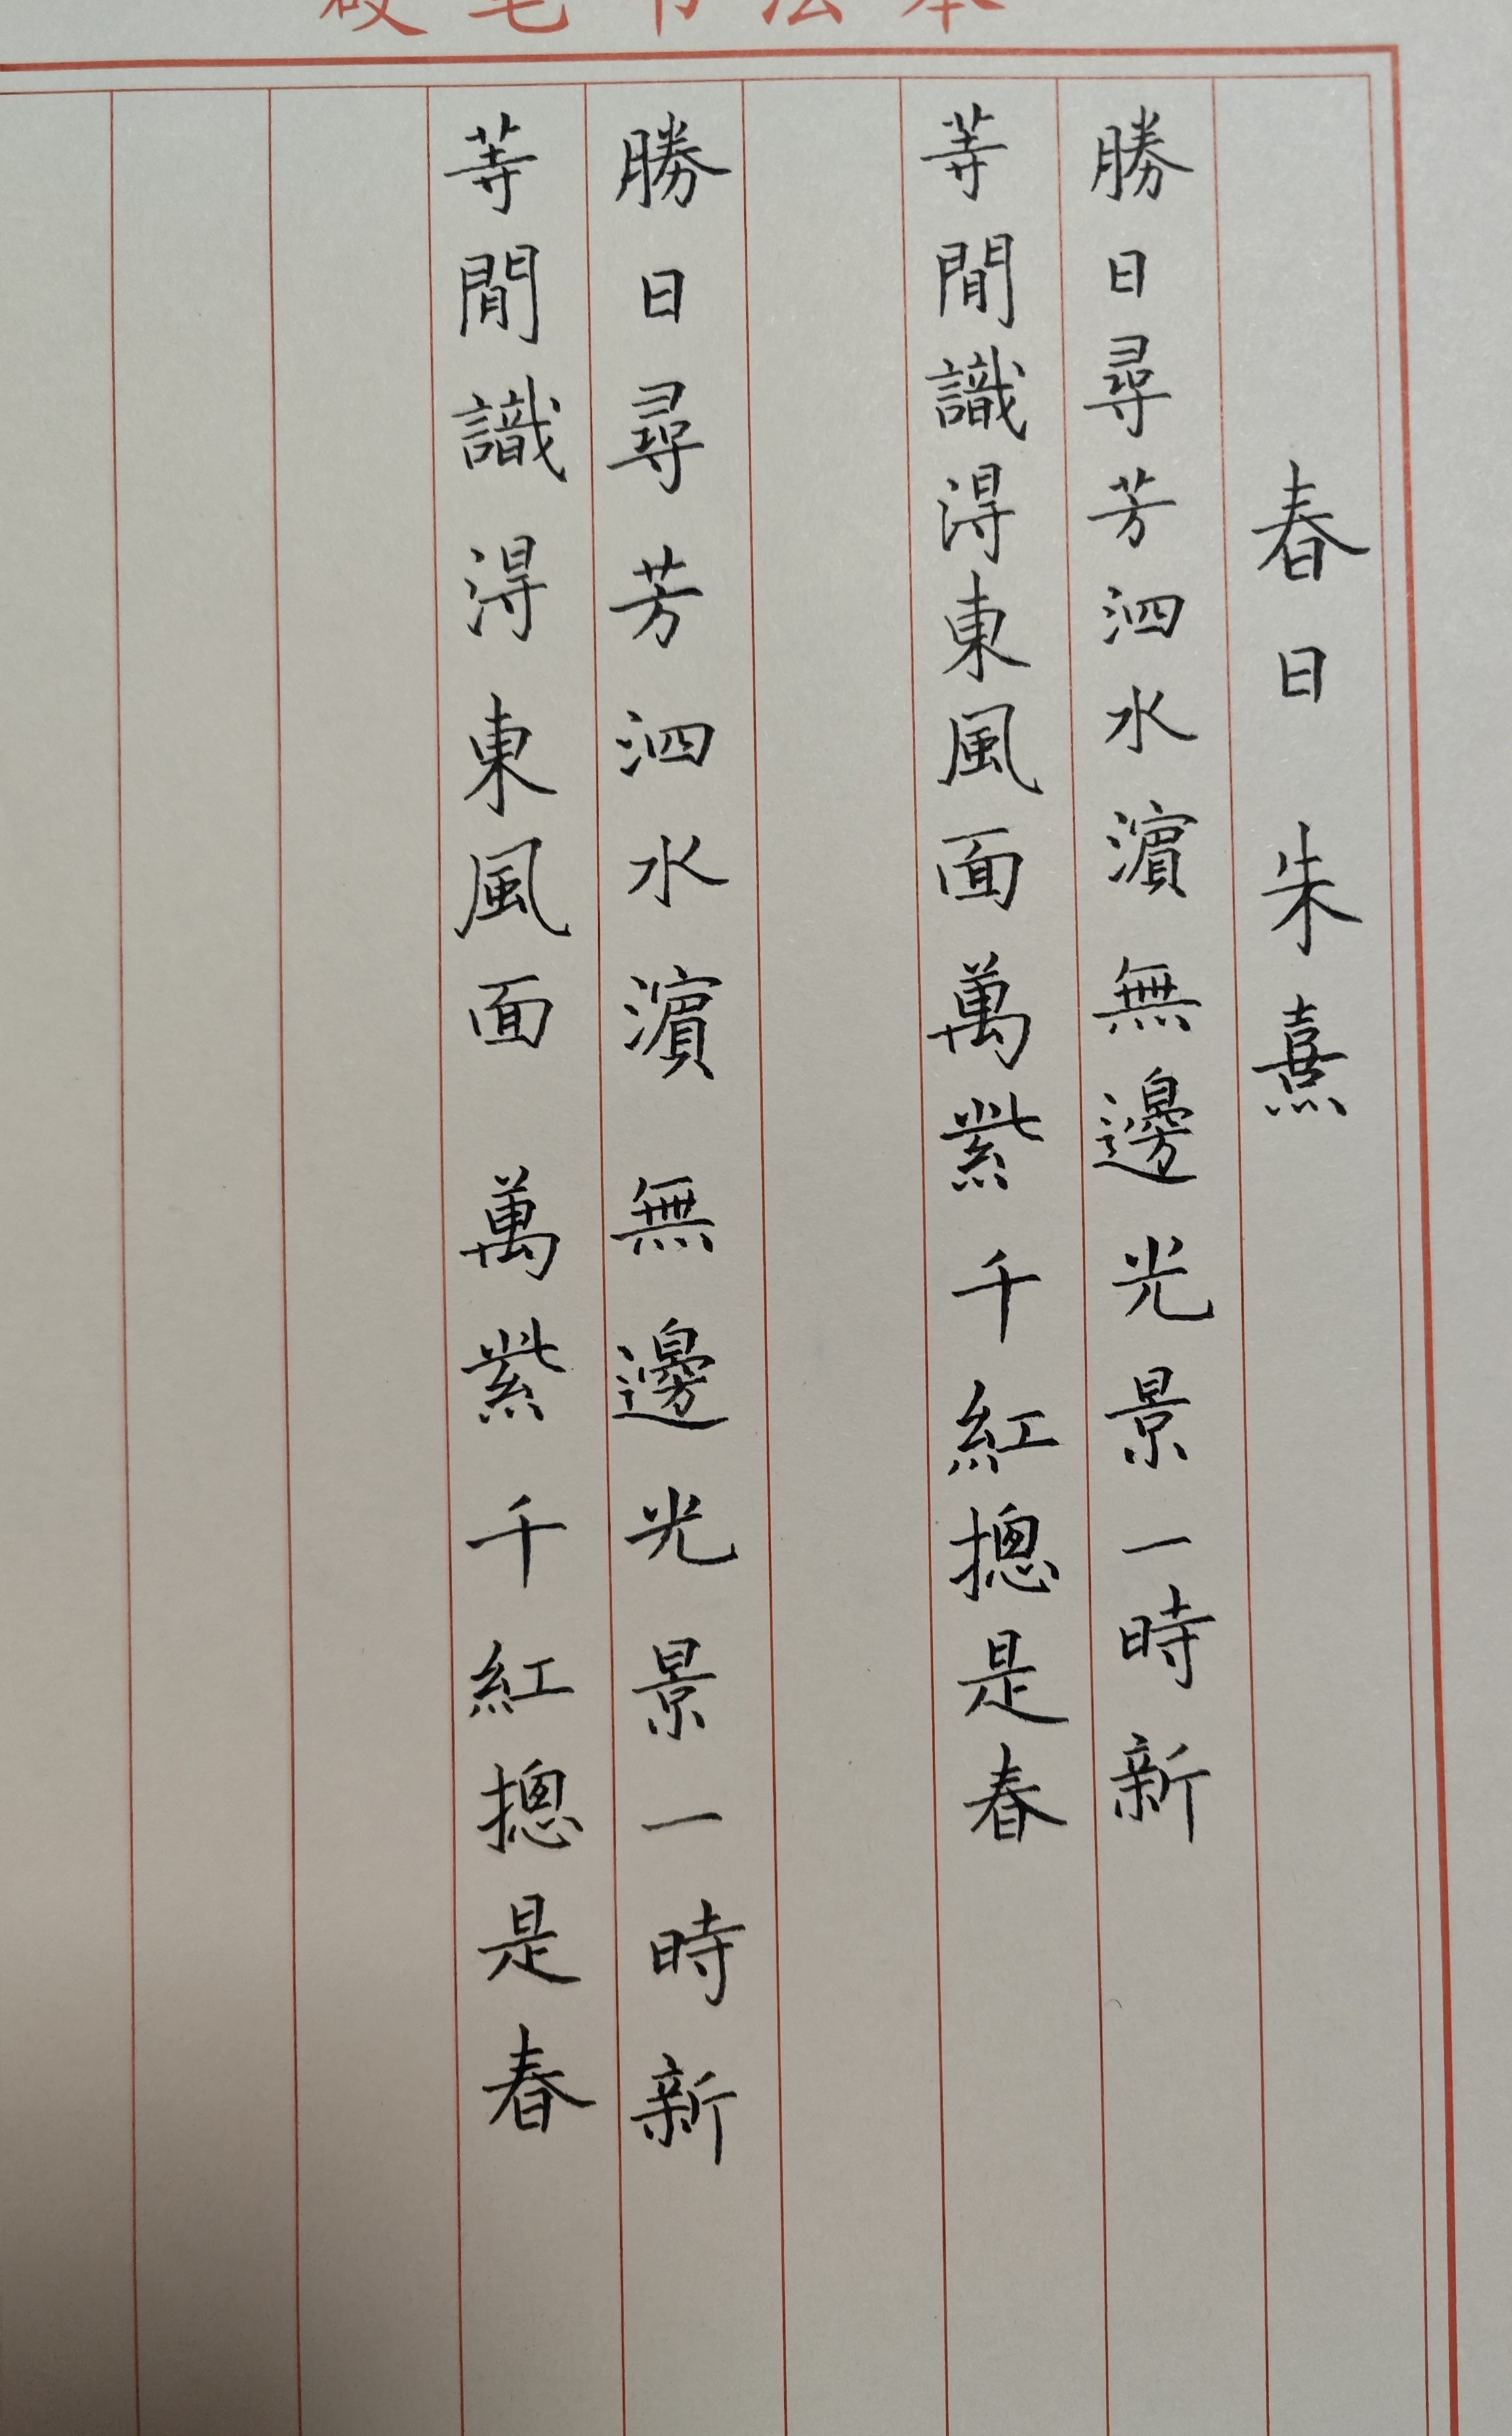 硬笔书法本
春日 朱熹
勝日尋芳泗水濵無邊光景一時新
等閒識淂東風面萬紫千紅摠是春
勝日尋芳泗水濵無邊光景一時新
等閒識淂東風面萬紫千紅摠是春